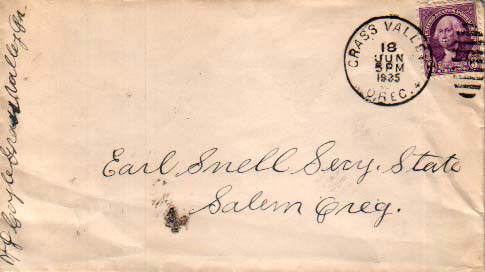 GRASS VALLEY
18
JUN
5 PM
1935
OREG.
Earl Snell Secy. State
Salem Oreg.
Grass Valley, Or.